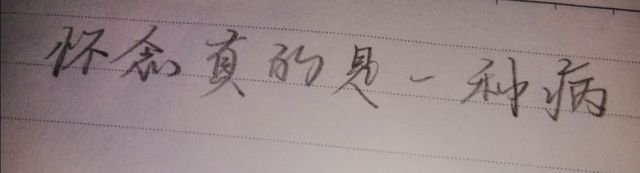 怀念真的是一种病